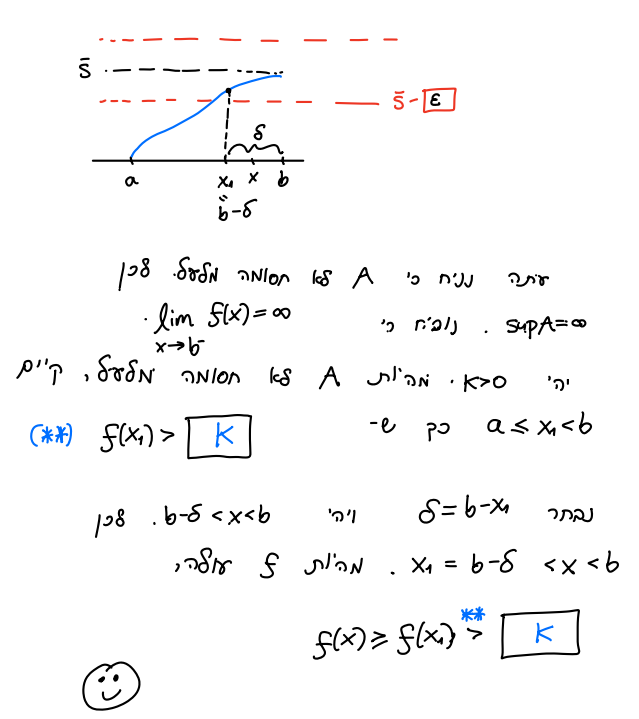 S̄
S̄ - ε
δ
a x₁ x b
"
b-δ
עתה נניח כי A לא חסומה מלעל. לכן
supA=∞ . נוכיח כי lim f(x)=∞ .
x→b⁻
יהי K>0 . מהיות A לא חסומה מלעל, קיים
a ≤ x₁ < b כך ש- f(x₁) > K (**)
נבחר δ=b-x₁ ויהי b-δ<x<b . לכן
x₁ = b-δ <x<b . מהיות f עולה,
f(x) ≥ f(x₁) >** K